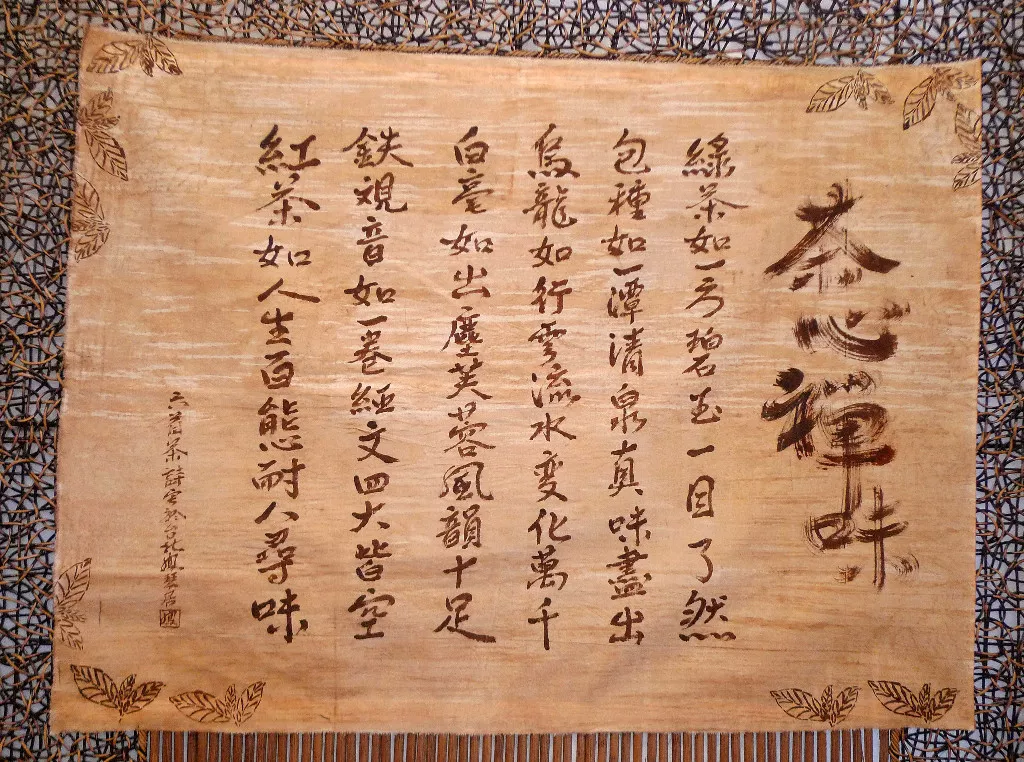 茶心禪味
綠茶如一方碧玉一目了然
包種如一潭清泉真味盡出
烏龍如行雲流水變化萬千
白毫如出塵芙蓉風韻十足
鉄視音如一卷經文四大皆空
紅茶如人生百態耐人尋味
茶詩